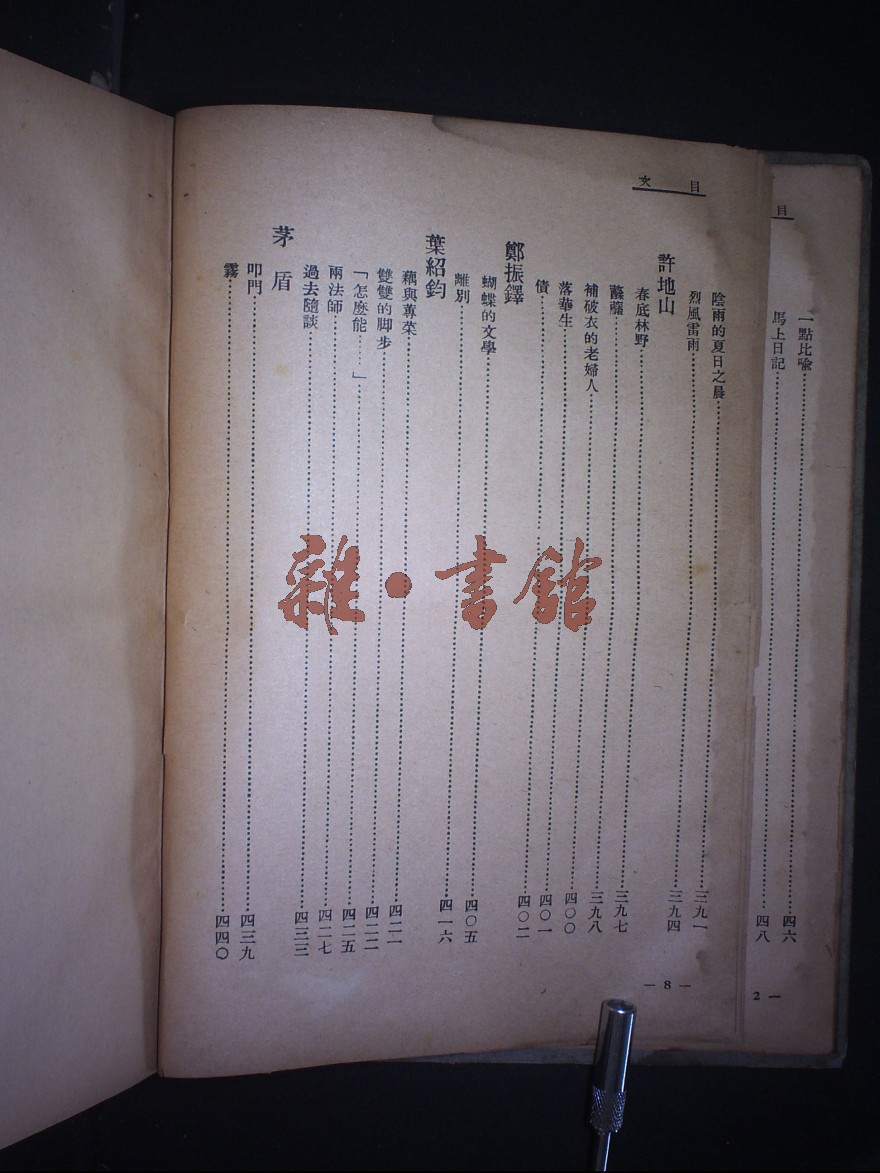 目次
陰雨的夏日之晨……三九一
烈風雷雨……三九四
許地山
春底林野……三九七
……三九八
補破衣的老婦人……四〇〇
落華生……四〇一
債……四〇二
鄭振鐸
蝴蝶的文學……四〇五
離別……四一六
葉紹鈞
藕與蓴菜……四二一
雙雙的脚步……四二二
「怎麼能……」……四二五
兩法師……四二七
過去隨談……四三三
茅盾
叩門……四三九
霧……四四〇
— 8 —
目
一點比喩……四六
馬上日記……四八
2 —
雜·書館